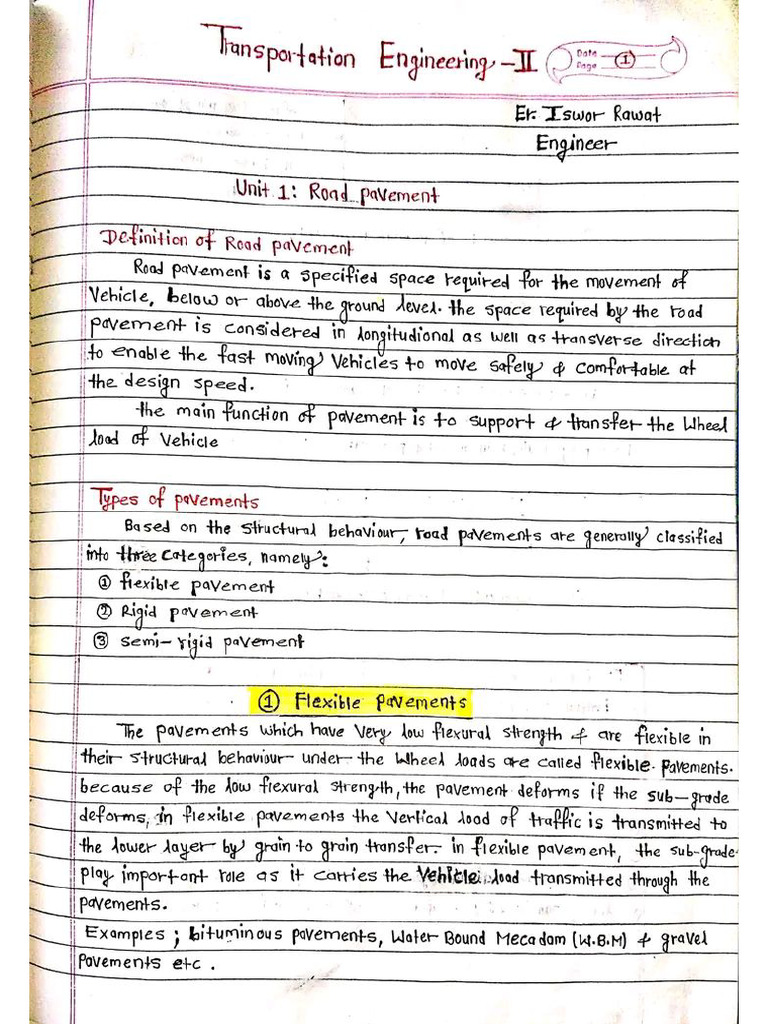 Transportation Engineering - II
Date
Page 1
Er. Iswor Rawat
Engineer
Unit 1: Road pavement
Definition of Road pavement
Road pavement is a specified space required for the movement of
Vehicle, below or above the ground level. the space required by the road
pavement is considered in longitudional as well as transverse direction
to enable the fast moving Vehicles to move safely & comfortable at
the design speed.
the main function of pavement is to support & transfer the Wheel
load of Vehicle
Types of pavements
Based on the structural behaviour, road pavements are generally classified
into three categories, namely:
① flexible pavement
② Rigid pavement
③ semi-rigid pavement
① Flexible pavements
The pavements which have very low flexural strength & are flexible in
their structural behaviour under the Wheel loads are called flexible pavements.
because of the low flexural strength, the pavement deforms if the sub-grade
deforms, in flexible pavements the vertical load of traffic is transmitted to
the lower layer by grain to grain transfer. in flexible pavement, the sub-grade
play important role as it carries the Vehicle load transmitted through the
pavements.
Examples ; bituminous pavements, Water Bound Mecadam (W.B.M) & gravel
Pavements etc.